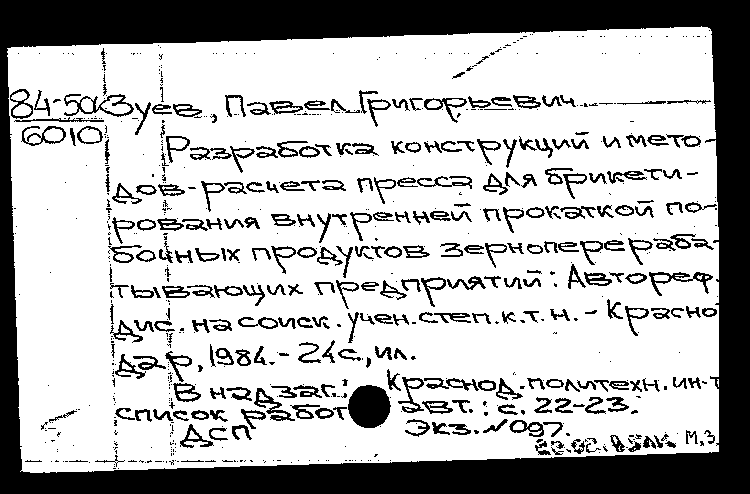 84-5ак Зуев, Павел Григорьевич.
6010
Разработка конструкций и мето-
дов расчета пресса для брикети-
рования внутренней прокаткой по-
бочных продуктов зерноперераба-
тывающих предприятий: Автореф.
дис. на соиск. учен. степ. к. т. н. - Красно
дар, 1984. - 24с., ил.
В надзаг.: Краснод. политехн. ин-т
список работ авт.: с. 22-23.
ДСП Экз. №097.
М,3